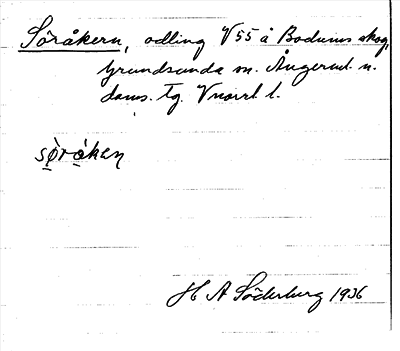 Söråkern, odling V55 å Bodums skog,
Grundsunda sn. Ångerml. n.
doms. tg. Vnorrl l.
söråken
H A Söderberg 1936